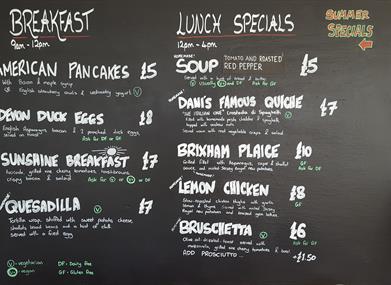 BREAKFAST
9am - 12pm
AMERICAN PANCAKES £5
With Bacon & maple syrup
OR English strawberry and yoghurt V
DEVON DUCK EGGS £8
English Asparagus, bacon & 2 poached duck eggs
served on toast Ask for DF or GF
SUNSHINE BREAKFAST £7
avocado, grilled vine cherry tomatoes,
crispy bacon & Ask for V or or DF
QUESADILLA V £7
Tortilla wrap stuffed with sweet potato, cheese
black beans and a hint of chilli
served with a fried egg
V - vegetarian DF - Dairy Free
- vegan GF - Gluten Free
LUNCH SPECIALS
12pm - 4pm
HOMEMADE
SOUP TOMATO AND ROASTED RED PEPPER £5
Served with a of bread & butter
V Usually and DF Ask for GF
DANI'S FAMOUS QUICHE V £7
"THE ITALIAN ONE"
filled with homemade pesto cheddar &
topped with
Served warm with roast vegetable & salad
BRIXHAM PLAICE £10
Grilled fillet with Asparagus, caper & shallot
sauce, and minted Jersey Royal new potatoes Ask for GF
LEMON CHICKEN £8
Slow-roasted chicken thighs with garlic
lemon & thyme. Served with minted Jersey GF
Royal new potatoes and dressed
BRUSCHETTA V £6
Olive oil drizzled toast served with Ask for GF
mozzarella, grilled vine cherry tomatoes & basil
ADD PROSCIUTTO... +£1.50
SUMMER
SPECIALS